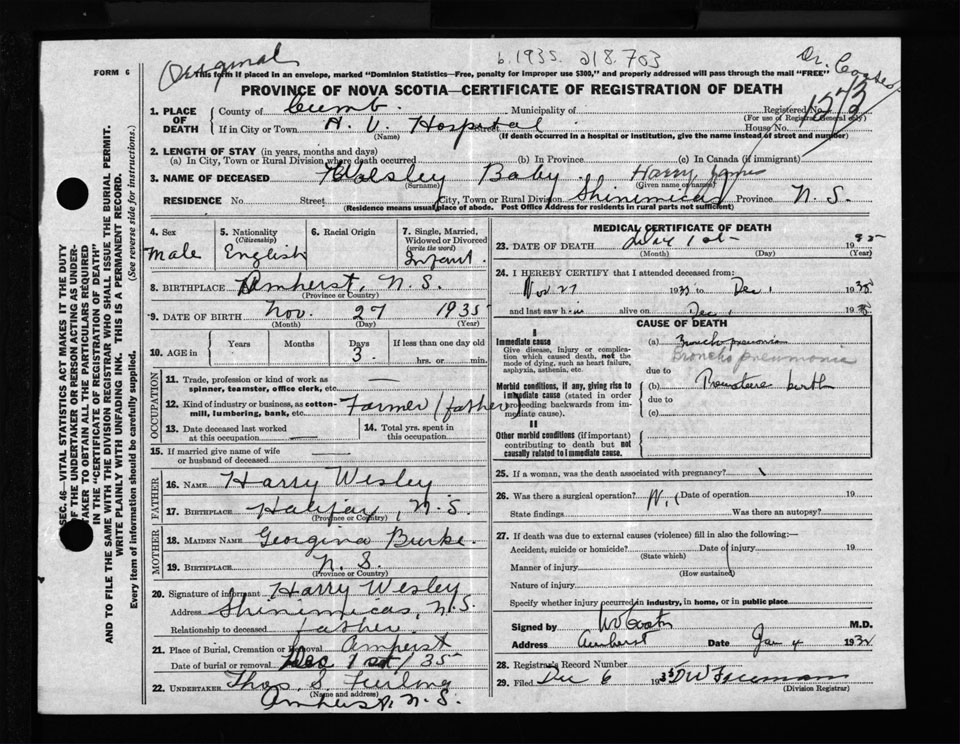 Original
b. 1935. 218.703
Dr. 
FORM 6
This form if placed in an envelope, marked "Dominion Statistics—Free, penalty for improper use $300," and properly addressed will pass through the mail "FREE"
PROVINCE OF NOVA SCOTIA—CERTIFICATE OF REGISTRATION OF DEATH
1. PLACE OF DEATH
County of Cumb. Municipality of Registered No. 1273
(For use of Registrar General only)
If in City or Town H. V. Hospital Street House No.
(Name) (If death occurred in a hospital or institution, give the name instead of street and number)
2. LENGTH OF STAY (in years, months and days)
(a) In City, Town or Rural Division where death occurred (b) In Province (c) In Canada (if immigrant)
3. NAME OF DECEASED Wolsley Baby Harry James
(Surname) (Given name or names)
RESIDENCE No. Street City, Town or Rural Division Shinimicas Province N. S.
(Residence means usual place of abode. Post Office Address for residents in rural parts not sufficient)
4. Sex
Male
5. Nationality
(Citizenship)
English
6. Racial Origin
7. Single, Married, Widowed or Divorced
(write the word)
Infant
8. BIRTHPLACE Amherst, N. S.
(Province or Country)
9. DATE OF BIRTH Nov. 27 1935
(Month) (Day) (Year)
10. AGE in
Years Months Days If less than one day old
3 hrs. or min.
OCCUPATION
11. Trade, profession or kind of work as spinner, teamster, office clerk, etc. —
12. Kind of industry or business, as cotton-mill, lumbering, bank, etc. Farmer (father)
13. Date deceased last worked at this occupation —
14. Total yrs. spent in this occupation
15. If married give name of wife or husband of deceased —
FATHER
16. NAME Harry Wesley
17. BIRTHPLACE Halifax, N. S.
(Province or Country)
MOTHER
18. MAIDEN NAME Georgina Burke
19. BIRTHPLACE N. S.
(Province or Country)
20. Signature of informant Harry Wesley
Address Shinimicas, N. S.
Relationship to deceased father
21. Place of Burial, Cremation or Removal Amherst
Date of burial or removal Dec 1st / 35
22. UNDERTAKER Thos. S. Furlong
(Name and address)
Amherst, N. S.
MEDICAL CERTIFICATE OF DEATH
23. DATE OF DEATH Dec 1st 1935
(Month) (Day) (Year)
24. I HEREBY CERTIFY that I attended deceased from:
Nov 27 1935 to Dec 1 1935
and last saw him alive on Dec 1 1935
CAUSE OF DEATH
I
Immediate cause
Give disease, injury or complication which caused death, not the mode of dying, such as heart failure, asphyxia, asthenia, etc.
(a) Bronchopneumonia
Broncho pneumonia
due to
Morbid conditions, if any, giving rise to immediate cause (stated in order proceeding backwards from immediate cause).
(b) Premature birth
due to
(c)
II
Other morbid conditions (if important) contributing to death but not causally related to immediate cause.
25. If a woman, was the death associated with pregnancy?
26. Was there a surgical operation? Date of operation 19
State findings Was there an autopsy?
27. If death was due to external causes (violence) fill in also the following:—
Accident, suicide or homicide? Date of injury 19
(State which)
Manner of injury
(How sustained)
Nature of injury
Specify whether injury occurred in industry, in home, or in public place
Signed by M.D.
Address Amherst Date Jan 4 193
28. Registrar's Record Number
29. Filed Dec 6 1935 D W Freeman
(Division Registrar)
SEC. 46—VITAL STATISTICS ACT MAKES IT THE DUTY OF THE UNDERTAKER OR PERSON ACTING AS UNDERTAKER TO OBTAIN ALL THE PARTICULARS REQUIRED IN THE "CERTIFICATE OF REGISTRATION OF DEATH" AND TO FILE THE SAME WITH THE DIVISION REGISTRAR WHO SHALL ISSUE THE BURIAL PERMIT.
WRITE PLAINLY WITH UNFADING INK. THIS IS A PERMANENT RECORD.
Every item of information should be carefully supplied. (See reverse side for instructions.)